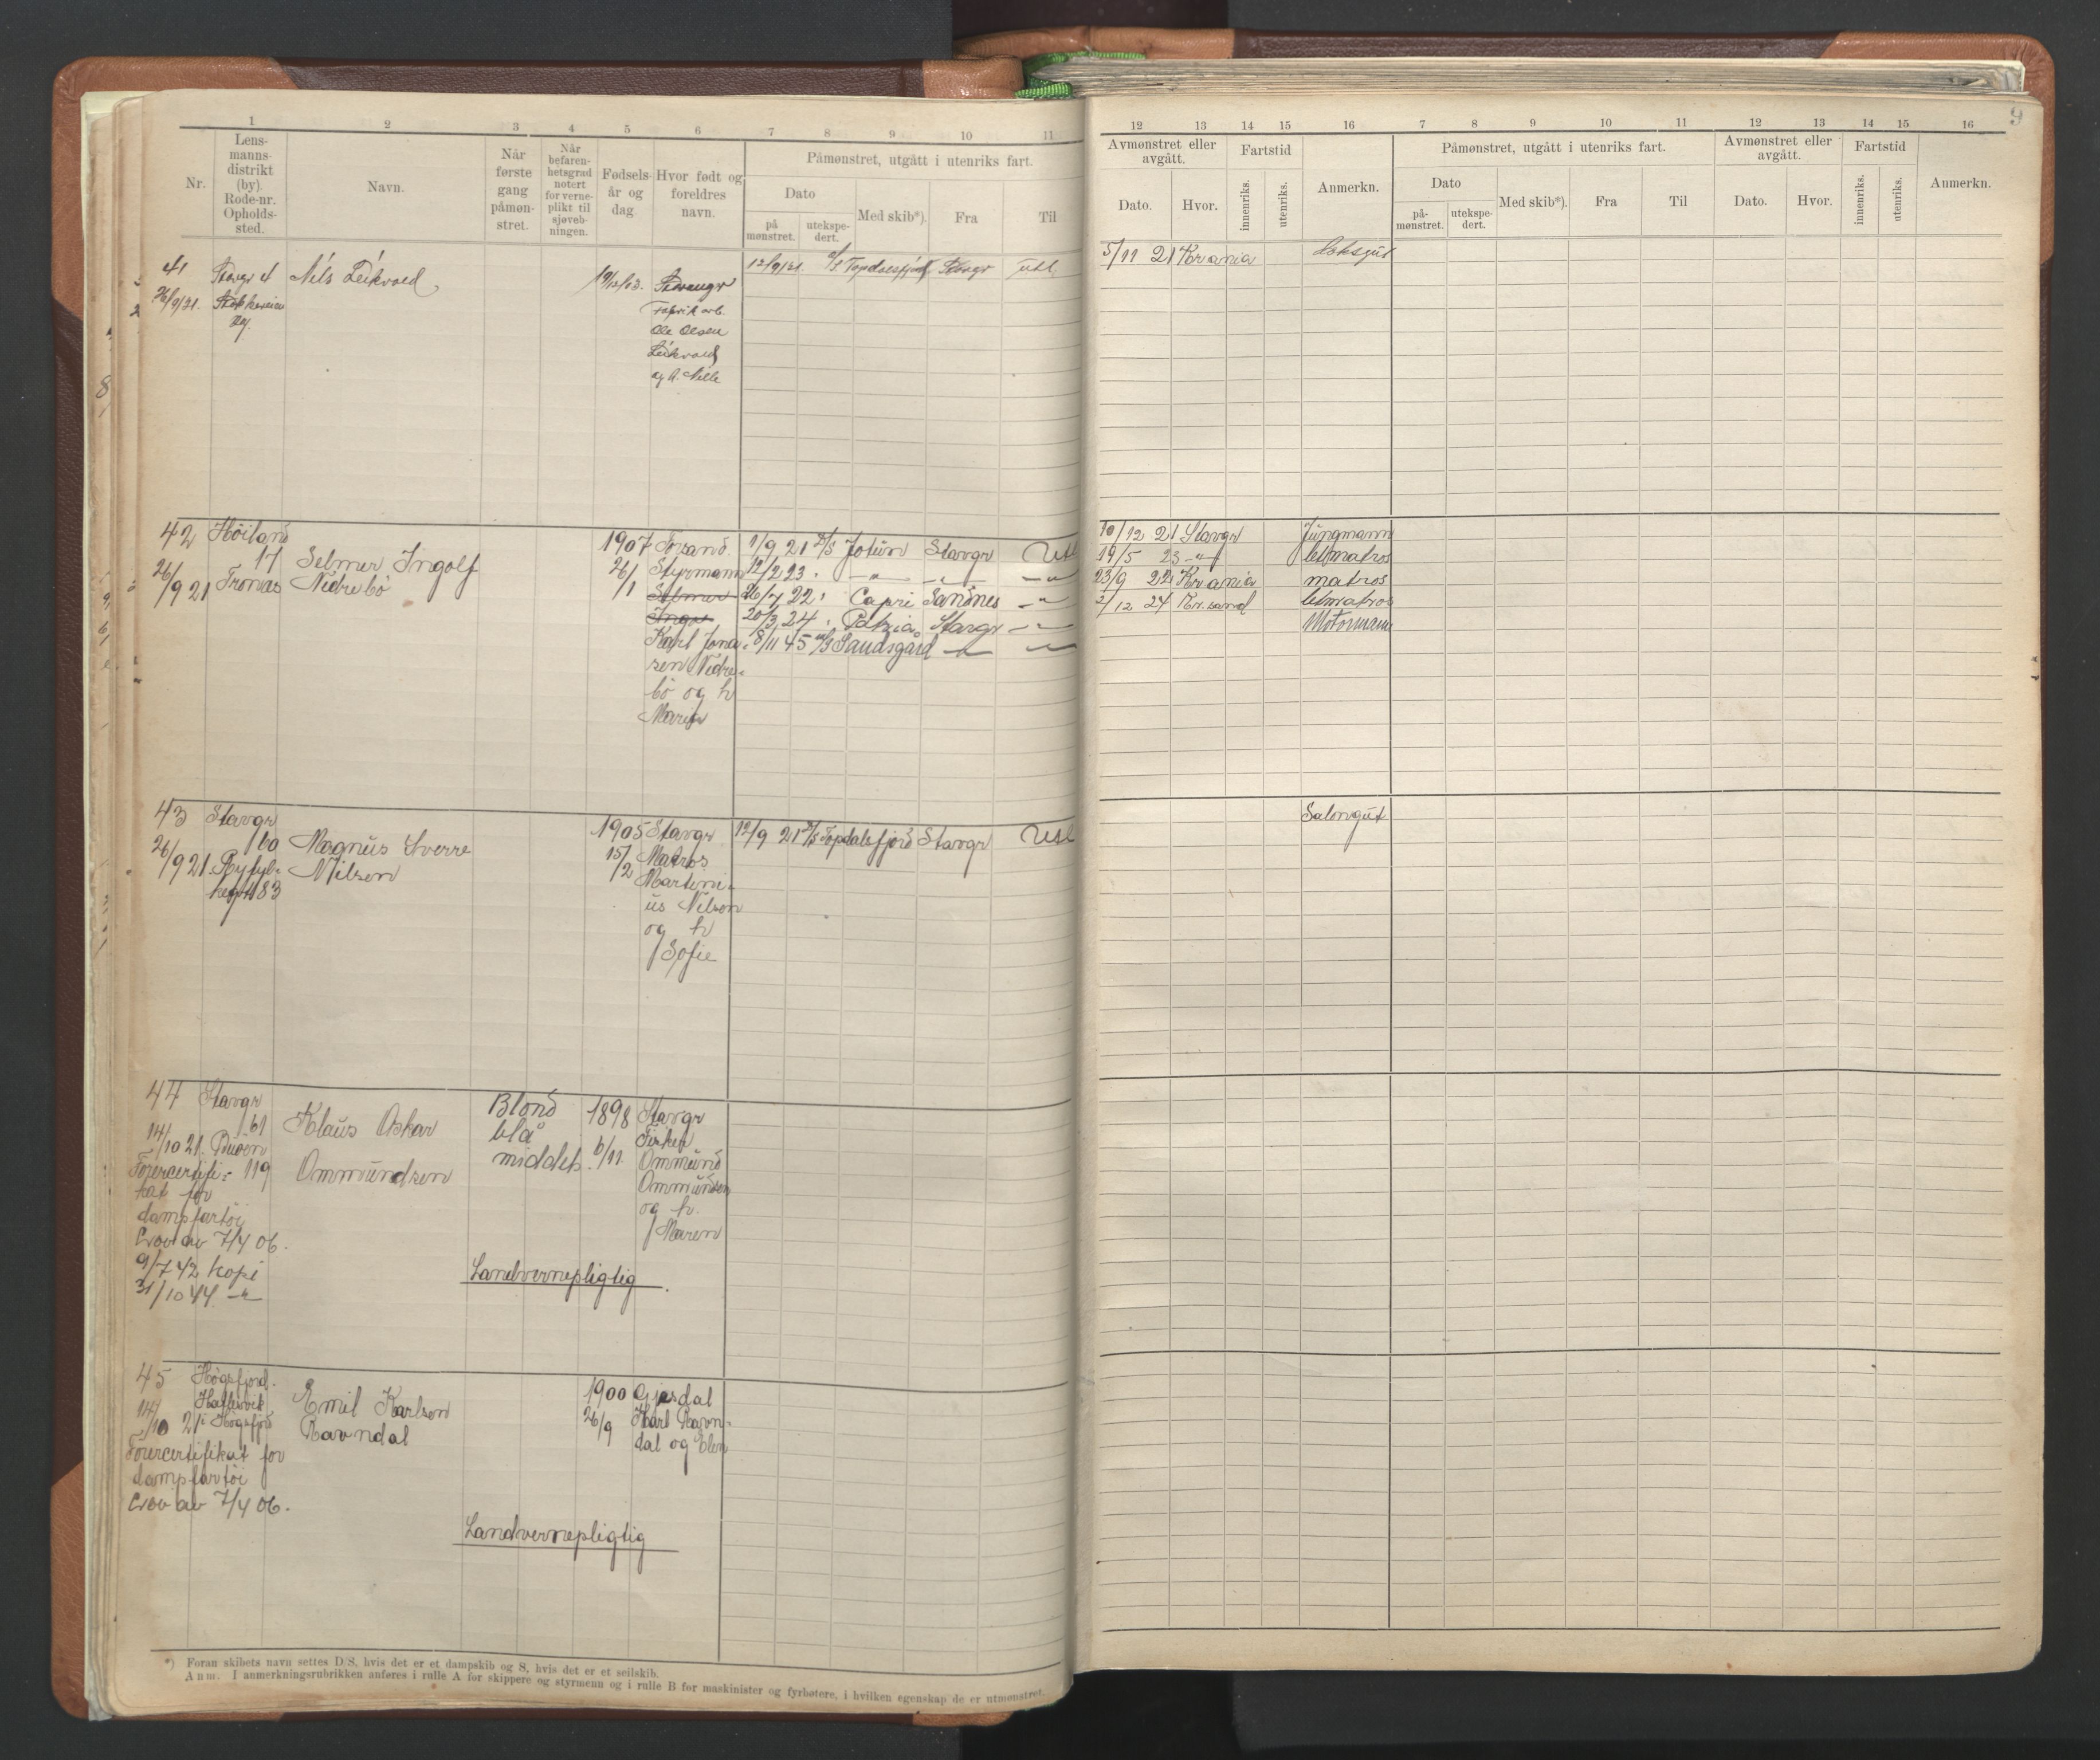 1 2 3 4 5 6 7 8 9 10 11
Nr.
Lens-
manns-
distrikt
(by).
Rode-nr.
Opholds-
sted.
Navn.
Når
første
gang
påmøn-
stret.
Når
befaren-
hetsgrad
notert
for verne-
plikt til
sjøveb-
ningen.
Fødsels-
år og
dag
Hvor født og
foreldres
navn.
Påmønstret, utgått i utenriks fart.
Dato
på
mønstret.
utekspe-
dert.
Med skib*).
Fra
Til
12 13 14 15 16 7 8 9 10 11 12 13 14 15 16
9
Avmønstret eller
avgått.
Dato.
Hvor.
Fartstid
innenriks.
utenriks.
Anmerkn.
Påmønstret, utgått i utenriks fart.
Dato
på-
mønstret.
utekspe-
dert.
Med skib*).
Fra
Til
Avmønstret eller
avgått.
Dato.
Hvor.
Fartstid
innenriks.
utenriks.
Anmerkn.
41 Stavgr 4 Nils Leikvold 19/12/03. Stavangr 12/9/21. Topdalsfjord Stavgr Utl.
26/9/21.
Fabrik arb.
Ole Olsen
Leikvold
og A. Nelle
5/11 21 Kr ania Koksgut
42 Höiland 1907 Forsand. 1/9 21 D/S Jotun Stavgr Utl
17 Selmer Ingolf 26/1 Styrmann 12/2 23 " —"— —"— —"—
26/9 21 Tronæs Nedrebö Selmer 26/7 22 " Capri Sandnes —"—
Ingv 20/3 24 " Patria Stavgr —"—
Karl Jona- 8/11 45 M/S Sandsgård —"— —"—
sen Nedre-
bö og h
Marie
10/12 21 Stavgr Jungmann
19/5 23 —"— letmatros
23/9 22 Kr ania matros
2/12 24 Kr.sand letmatros
Motormann
43 Stavgr 1905 Stavgr 12/9 21 D/S Topdalsfjord Stavgr Utl
16a Magnus Sverre 15/2 Matros
26/9 21 Ryfyl- Nilsen Martini-
kegt 83 us Nilson
og h
Sofie
Salongut
44 Stavgr Blond 1898 Stavgr
61 Klaus Oskar blå 6/11. Fisker
14/10 21. Buöen middels. Ommund
Förercertifi- 119 Ommundsen Ommundsen
kat for og h.
dampfartöi Maren
Lov av 7/4 06.
9/7 42 kopi Landvernepligtig.
31/10 44. —"—
45 Høgsfjord. 1900 Gjesdal
Emil Karlsen 26/9 Karl Ravn-
14/10 21 Høgsfjrd Ravndal dal og Elen
Förercertifikat for
dampfartöi
Lov av 7/4 06.
Landvernepligtig
*) Foran skibets navn settes D/S, hvis det er et dampskib og S, hvis det er et seilskib.
Anm. I anmerkningsrubrikken anføres i rulle A for skippere og styrmenn og i rulle B for maskinister og fyrbøtere, i hvilken egenskap de er utmønstret.